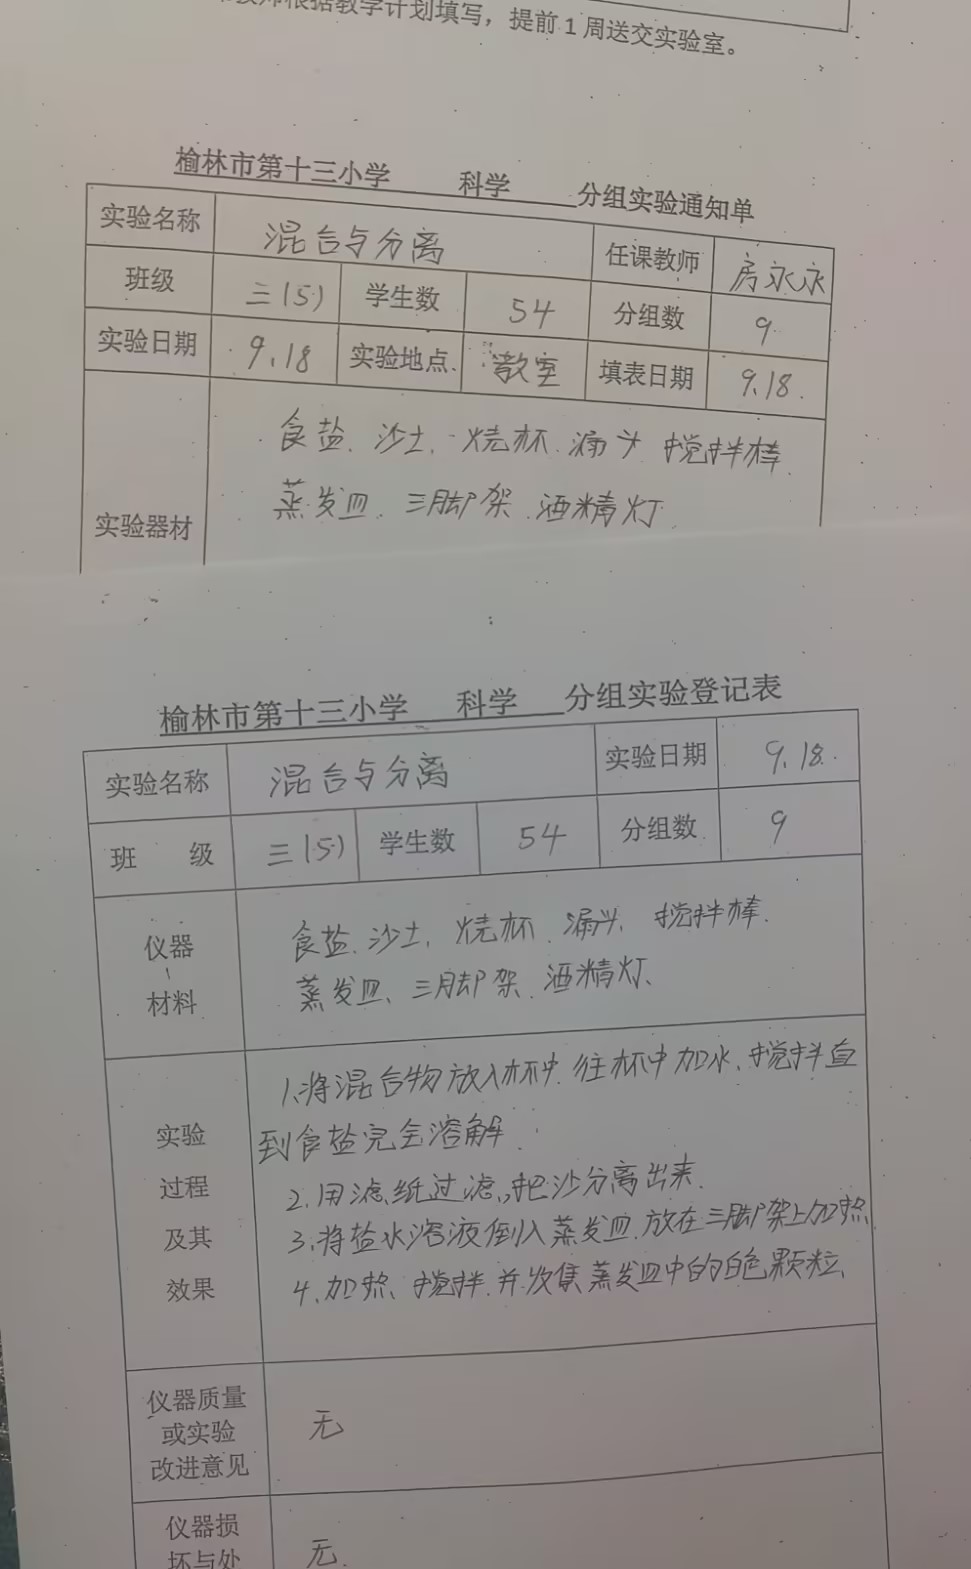 教师根据教学计划填写，提前1周送交实验室。
榆林市第十三小学 科学 分组实验通知单
实验名称 混合与分离 任课教师 房永永
班级 三(5) 学生数 54 分组数 9
实验日期 9.18 实验地点 教室 填表日期 9.18.
食盐、沙土、烧杯、漏斗 搅拌棒
实验器材 蒸发皿、三脚架、酒精灯
榆林市第十三小学 科学 分组实验登记表
实验名称 混合与分离 实验日期 9.18.
班 级 三(5) 学生数 54 分组数 9
仪器 食盐、沙土、烧杯、漏斗、搅拌棒.
材料 蒸发皿、三脚架、酒精灯、
实验
过程
及其
效果
1.将混合物放入杯中.往杯中加水、搅拌直
到食盐完全溶解.
2.用滤纸过滤,把沙分离出来.
3.将盐水溶液倒入蒸发皿.放在三脚架上加热
4.加热、搅拌.并收集蒸发皿中的白色颗粒、
仪器质量
或实验
改进意见
无
仪器损
坏与处
无.